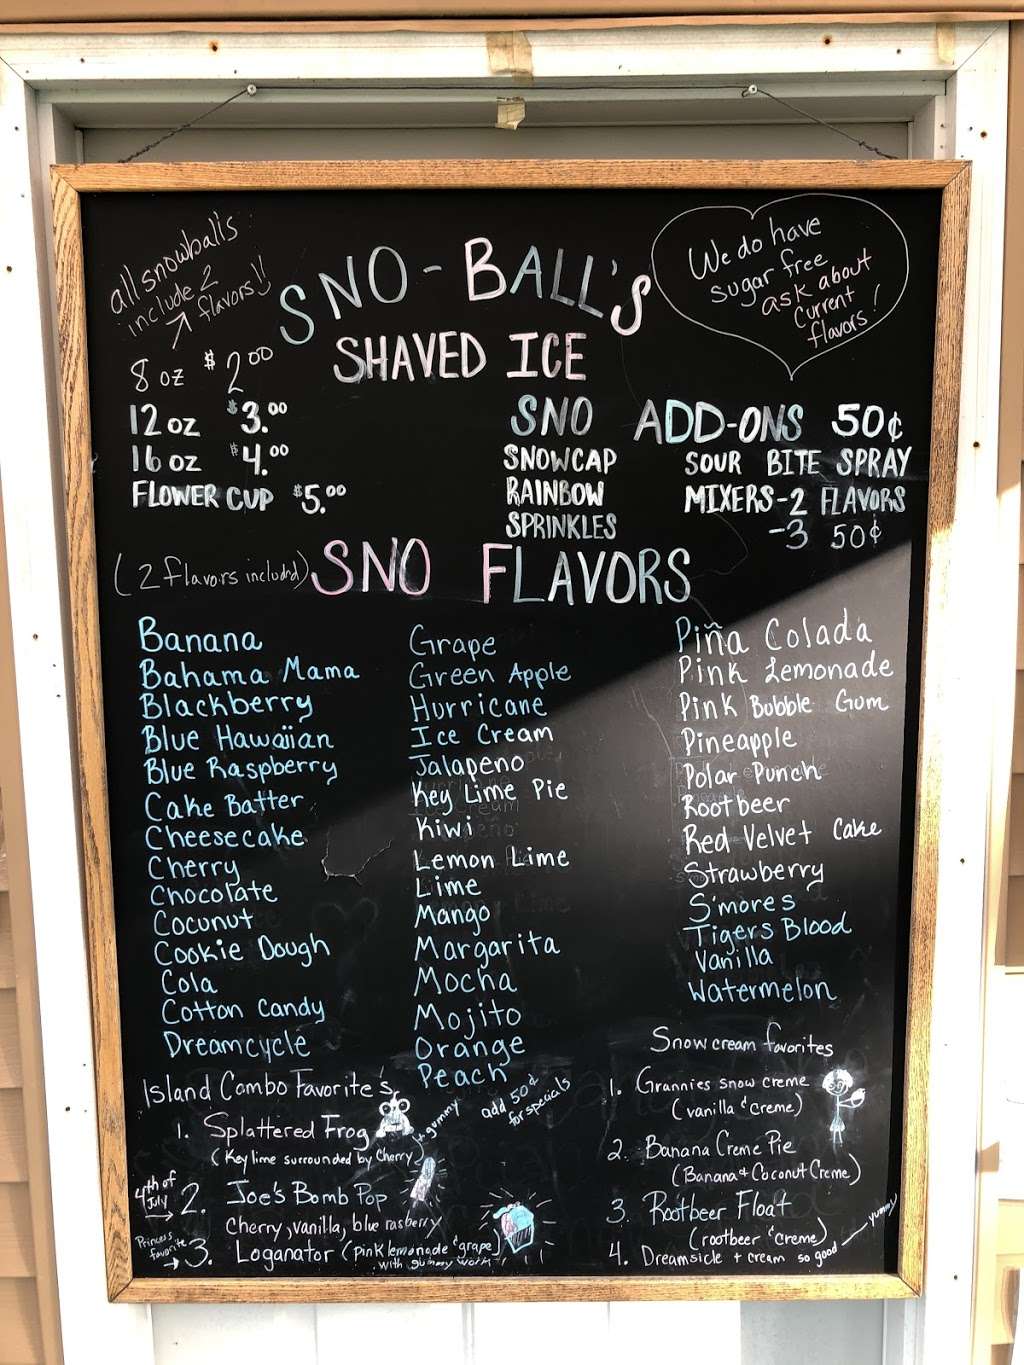 all snowball's
include 2
flavors!!
SNO-BALL'S
SHAVED ICE
We do have
sugar free
ask about
current
flavors!
8 oz $2.00
12 oz $3.00
16 oz $4.00
FLOWER CUP $5.00
SNO ADD-ONS 50¢
SNOWCAP
RAINBOW
SPRINKLES
SOUR BITE SPRAY
MIXERS-2 FLAVORS
-3 50¢
(2 flavors included)
SNO FLAVORS
Banana
Bahama Mama
Blackberry
Blue Hawaiian
Blue Raspberry
Cake Batter
Cheesecake
Cherry
Chocolate
Coconut
Cookie Dough
Cola
Cotton Candy
Dreamcycle
Grape
Green Apple
Hurricane
Ice Cream
Jalapeno
Key Lime Pie
Kiwi
Lemon Lime
Lime
Mango
Margarita
Mocha
Mojito
Orange
Peach
Piña Colada
Pink Lemonade
Pink Bubble Gum
Pineapple
Polar Punch
Rootbeer
Red Velvet Cake
Strawberry
S'mores
Tigers Blood
Vanilla
Watermelon
Island Combo Favorite's
add 50¢
for specials
1. Splattered Frog
(Key lime surrounded by Cherry)
+ gummy
4th of
July
2. Joe's Bomb Pop
cherry, vanilla, blue rasberry
Princess
favorite
3. Loganator (pink lemonade & grape)
with gummy worm
Snow cream favorites
1. Grannies snow creme
(vanilla & creme)
2. Banana Creme Pie
(Banana + Coconut Creme)
3. Rootbeer Float
(rootbeer & creme)
4. Dreamsicle + cream so good
yummy